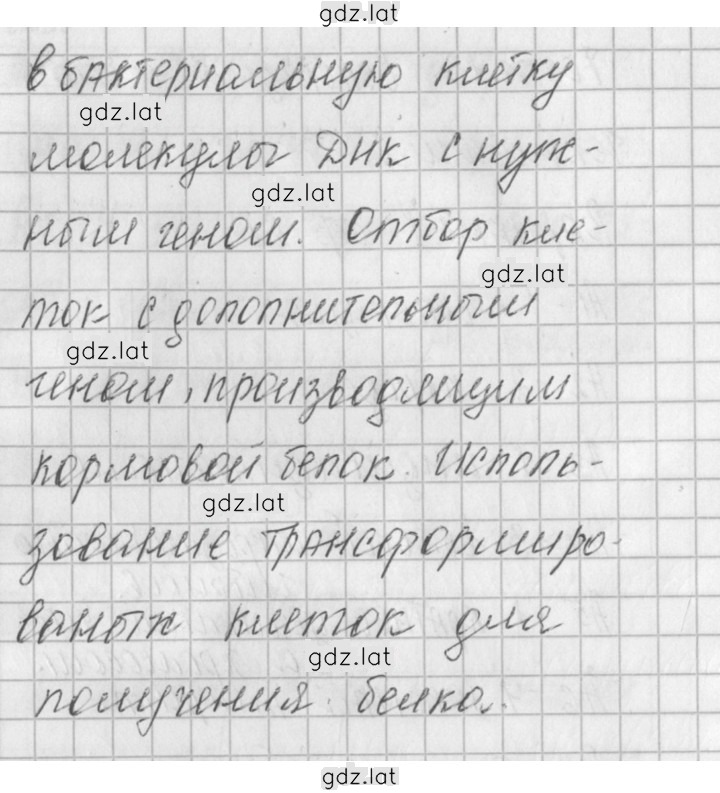 gdz.lat
в бактериальную клетку
gdz.lat
молекулы ДНК с нуж-
gdz.lat
ным геном. Отбор кле-
gdz.lat
ток с дополнительным
gdz.lat
геном, производящим
кормовой белок. Исполь-
gdz.lat
зование трансформиро-
ваных клеток для
gdz.lat
получения белка.
gdz.lat